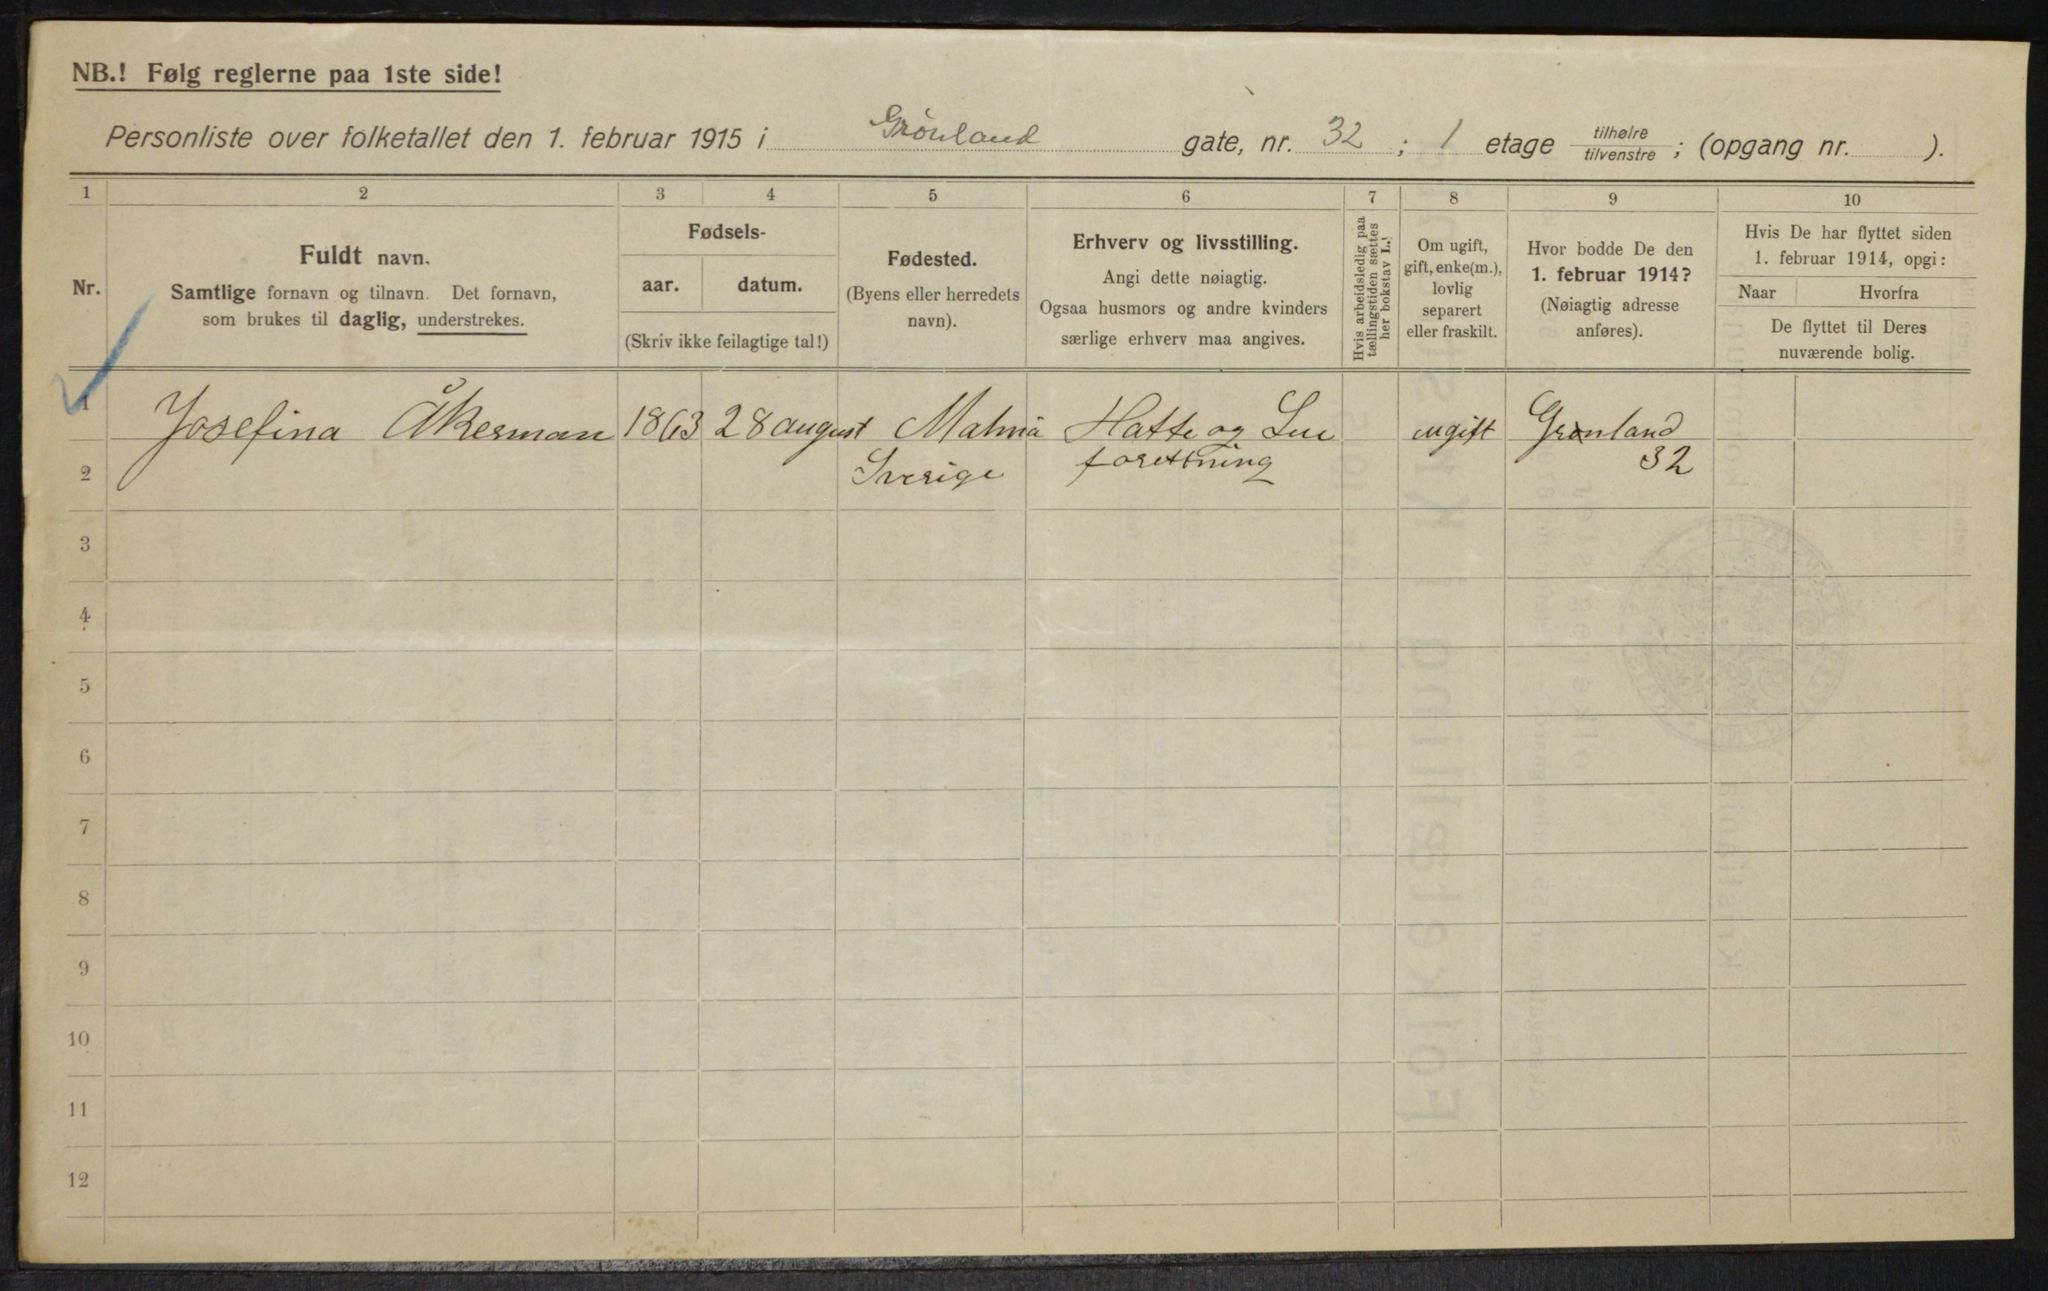 NB.! Følg reglerne paa 1ste side!
Personliste over folketallet den 1. februar 1915 i Grönland gate, nr. 32 ; 1 etage tilhøire/tilvenstre ; (opgang nr. ).
1 2 3 4 5 6 7 8 9 10
Nr.
Fuldt navn.
Samtlige fornavn og tilnavn. Det fornavn,
som brukes til daglig, understrekes.
Fødsels-
aar. datum.
(Skriv ikke feilagtige tal!)
Fødested.
(Byens eller herredets
navn).
Erhverv og livsstilling.
Angi dette nøiagtig.
Ogsaa husmors og andre kvinders
særlige erhverv maa angives.
Hvis arbeidsledig paa
tællingstiden sættes
her bokstav L.!
Om ugift,
gift, enke(m.),
lovlig
separert
eller fraskilt.
Hvor bodde De den
1. februar 1914?
(Nøiagtig adresse
anføres).
Hvis De har flyttet siden
1. februar 1914, opgi:
Naar Hvorfra
De flyttet til Deres
nuværende bolig.
1 Josefina Åkerman 1863 28 august Malmö Hatte og ugift Grønland
2 Sverige foretning 32
3
4
5
6
7
8
9
10
11
12